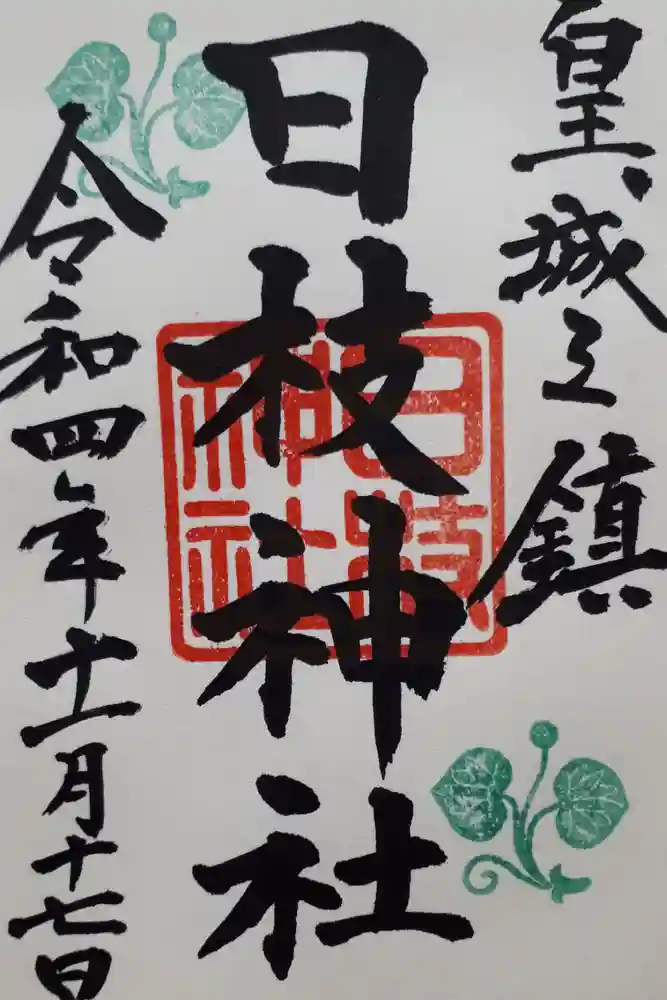 皇城之鎮
日枝神社
日枝神社
令和四年十一月十七日